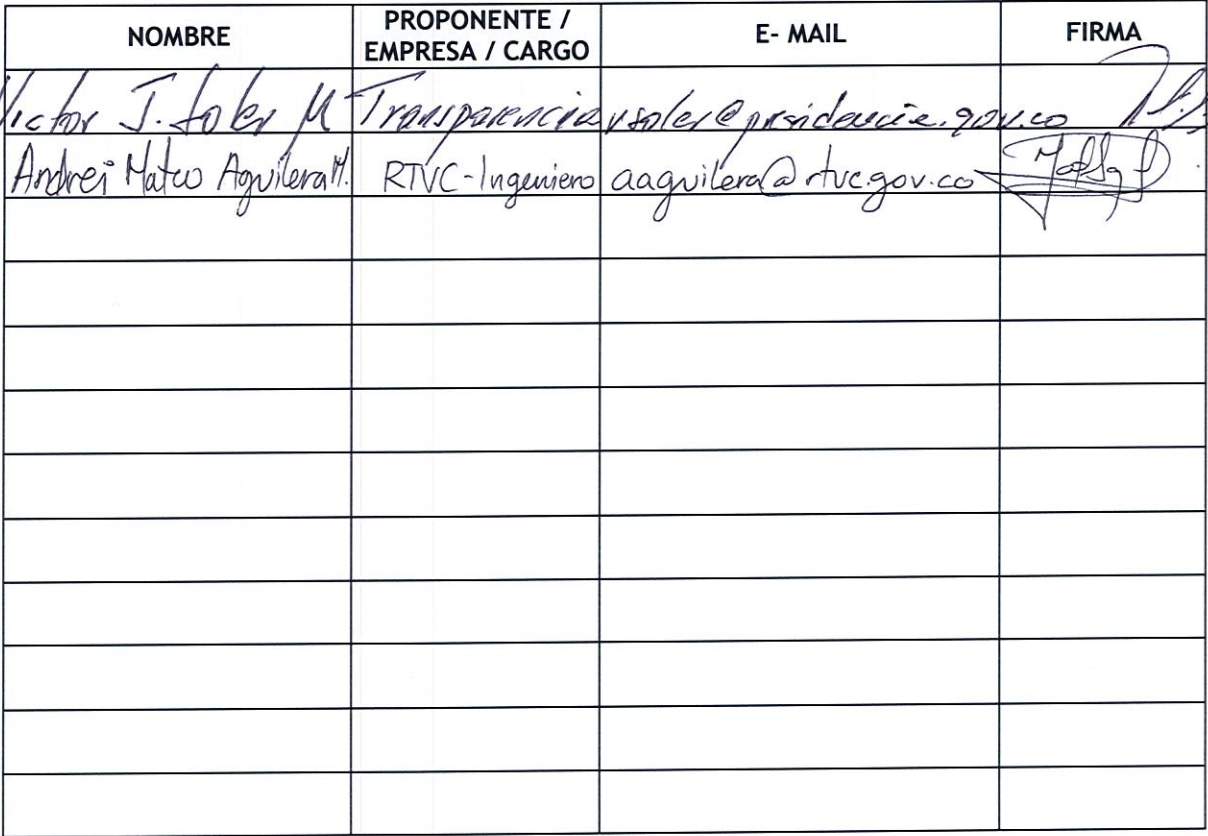 NOMBRE PROPONENTE / EMPRESA / CARGO E- MAIL FIRMA
Victor J. Soler M Transparencia vsoler@presidencia.gov.co
Andrei Mateo Aguilera M. RTVC-Ingeniero aaguilera@rtvc.gov.co